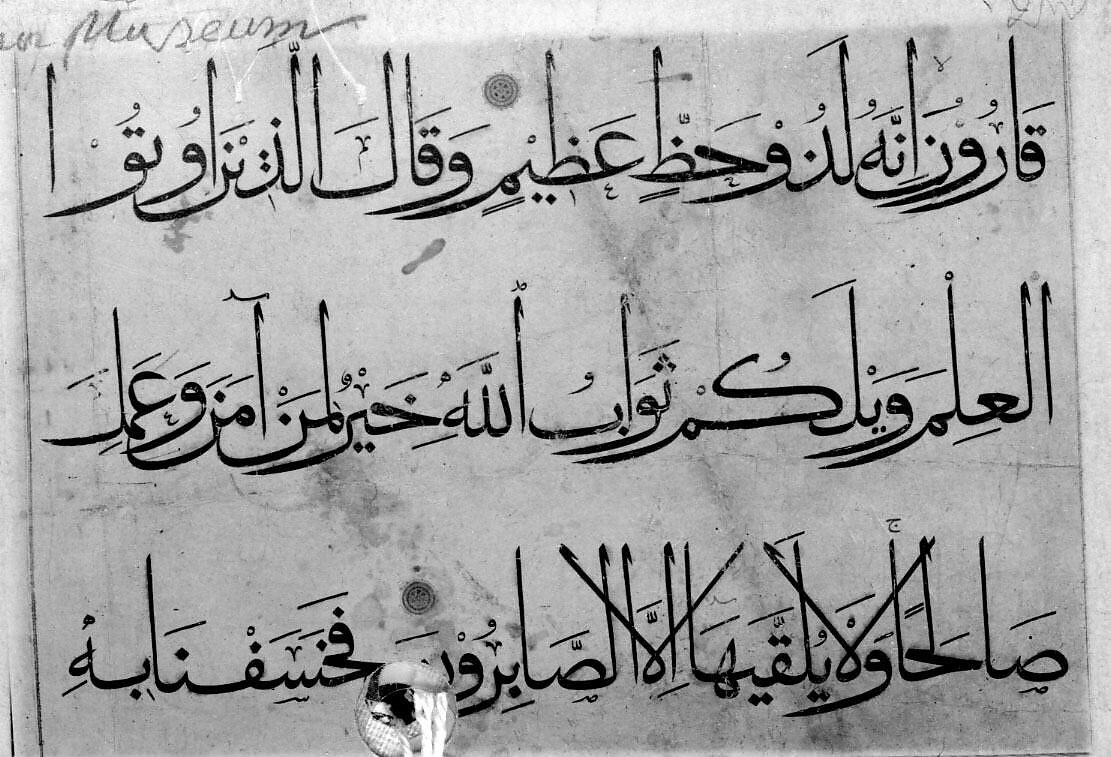 Museum
قَارُوْنَ اِنَّهُ لَذُوْ حَظٍّ عَظِيْمٍ وَقَالَ الَّذِيْنَ اُوتُوْا
الْعِلْمَ وَيْلَكُمْ ثَوَابُ اللّٰهِ خَيْرٌ لِمَنْ آمَنَ وَعَمِلَ
صَالِحًا وَلَا يُلَقَّيهَا اِلَّا الصَّابِرُوْنَ فَخَسَفْنَا بِهِ